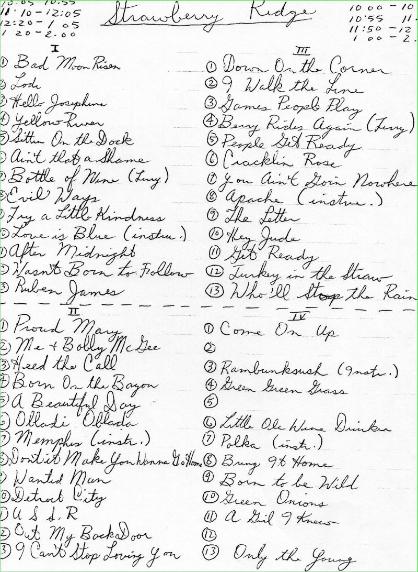 Strawberry Ridge
10:05 10:55
11:10-12:05
12:20-1:05
1:20-2:00
10:00-10
10:55 11
11:50-12
1:00-2.
I
① Bad Moon Risen
Lodi
Hello Josephine
Yellow River
Sitten On the Dock
Ain't that a Shame
Bottle of Wine (Terry)
Evil Ways
Try a Little Kindness
Love is Blue (instru.)
After Midnight
Wasn't Born to Follow
Ruben James
II
① Proud Mary
Me + Bobby McGee
Heed the Call
Born On the Bayou
A Beautiful Day
Obladi Oblada
Memphis (instr.)
Don't it Make You Wanna Go Home
Wanted Man
Detroit City
U S S R
Out My Back Door
I Can't Stop Loving You
III
① Down On the Corner
② I Walk the Line
③ Games People Play
④ Berry Rides Again (Terry)
⑤ People Get Ready
⑥ Cracklin Rose
⑦ You Ain't Goin Nowhere
⑧ Apache (instru.)
⑨ The Letter
⑩ Hey Jude
⑪ Get Ready
⑫ Turkey in the Straw
⑬ Who'll Stop the Rain
IV
① Come On Up
②
③ Rambunkshush (Instr.)
④ Green Green Grass
⑤
⑥ Little Ole Wine Drinker
⑦ Polka (instr.)
⑧ Bring It Home
⑨ Born to be Wild
⑩ Green Onions
⑪ A Girl I Knew
⑫
⑬ Only the Young